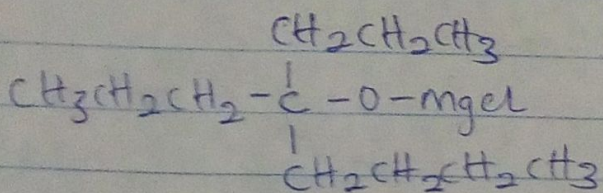 CH2CH2CH3
CH3CH2CH2-C-O-MgCl
CH2CH2CH2CH3